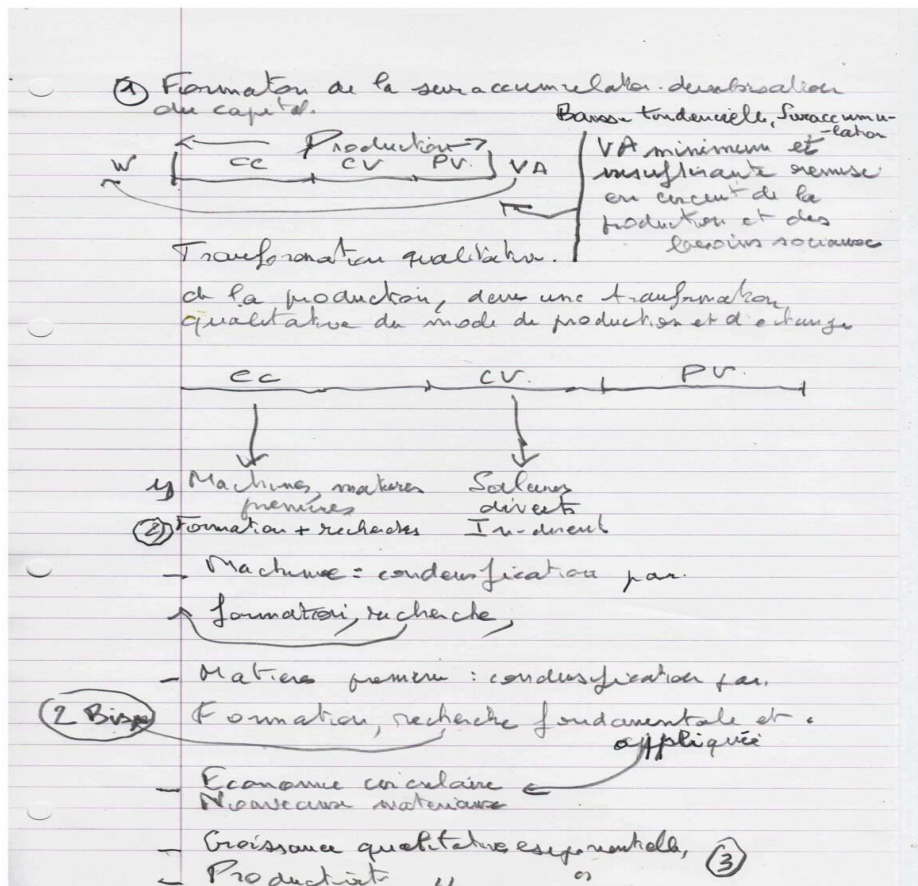 ① Formaton de la suraccumulation-devalorisation
du capital.
Baisse tendencielle, Suraccumu-
-lation
Production
W CC CV PV. VA
VA minimum et
insuffisante remise
en circuit de la
production et des
besoins sociaux
Transformation qualitative.
de la production, dans une transformation
qualitative du mode de production et d'echange
CC CV. PV.
1) Machines, matieres Salaires
premières directs
② Formation + recherches In-direct
- Machine = condensification par.
formation, recherche,
- Matiere premiere : condensification par.
2 Bis Formation, recherche fondamentale et
appliquée
- Economie circulaire
Nouveaux materiaux
- Croissance qualitative exponentielle,
③
- Productivité